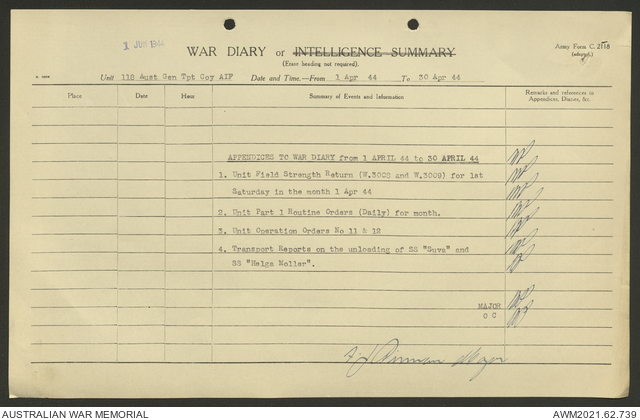 1 JUN 1944
WAR DIARY or INTELLIGENCE SUMMARY
(Erase heading not required).
Army Form C. 2118
Unit 118 Aust Gen Tpt Coy AIF Date and Time.—From 1 Apr 44 To 30 Apr 44
Place Date Hour Summary of Events and Information Remarks and references to Appendices, Diaries, &c.
APPENDICES TO WAR DIARY from 1 APRIL 44 to 30 APRIL 44
1. Unit Field Strength Return (W.3002 and W.3009) for 1st
Saturday in the month 1 Apr 44
2. Unit Part 1 Routine Orders (Daily) for month.
3. Unit Operation Orders No 11 & 12
4. Transport Reports on the unloading of SS "Suva" and
SS "Helga Moller".
MAJOR
O C
Major
AUSTRALIAN WAR MEMORIAL
AWM2021.62.739